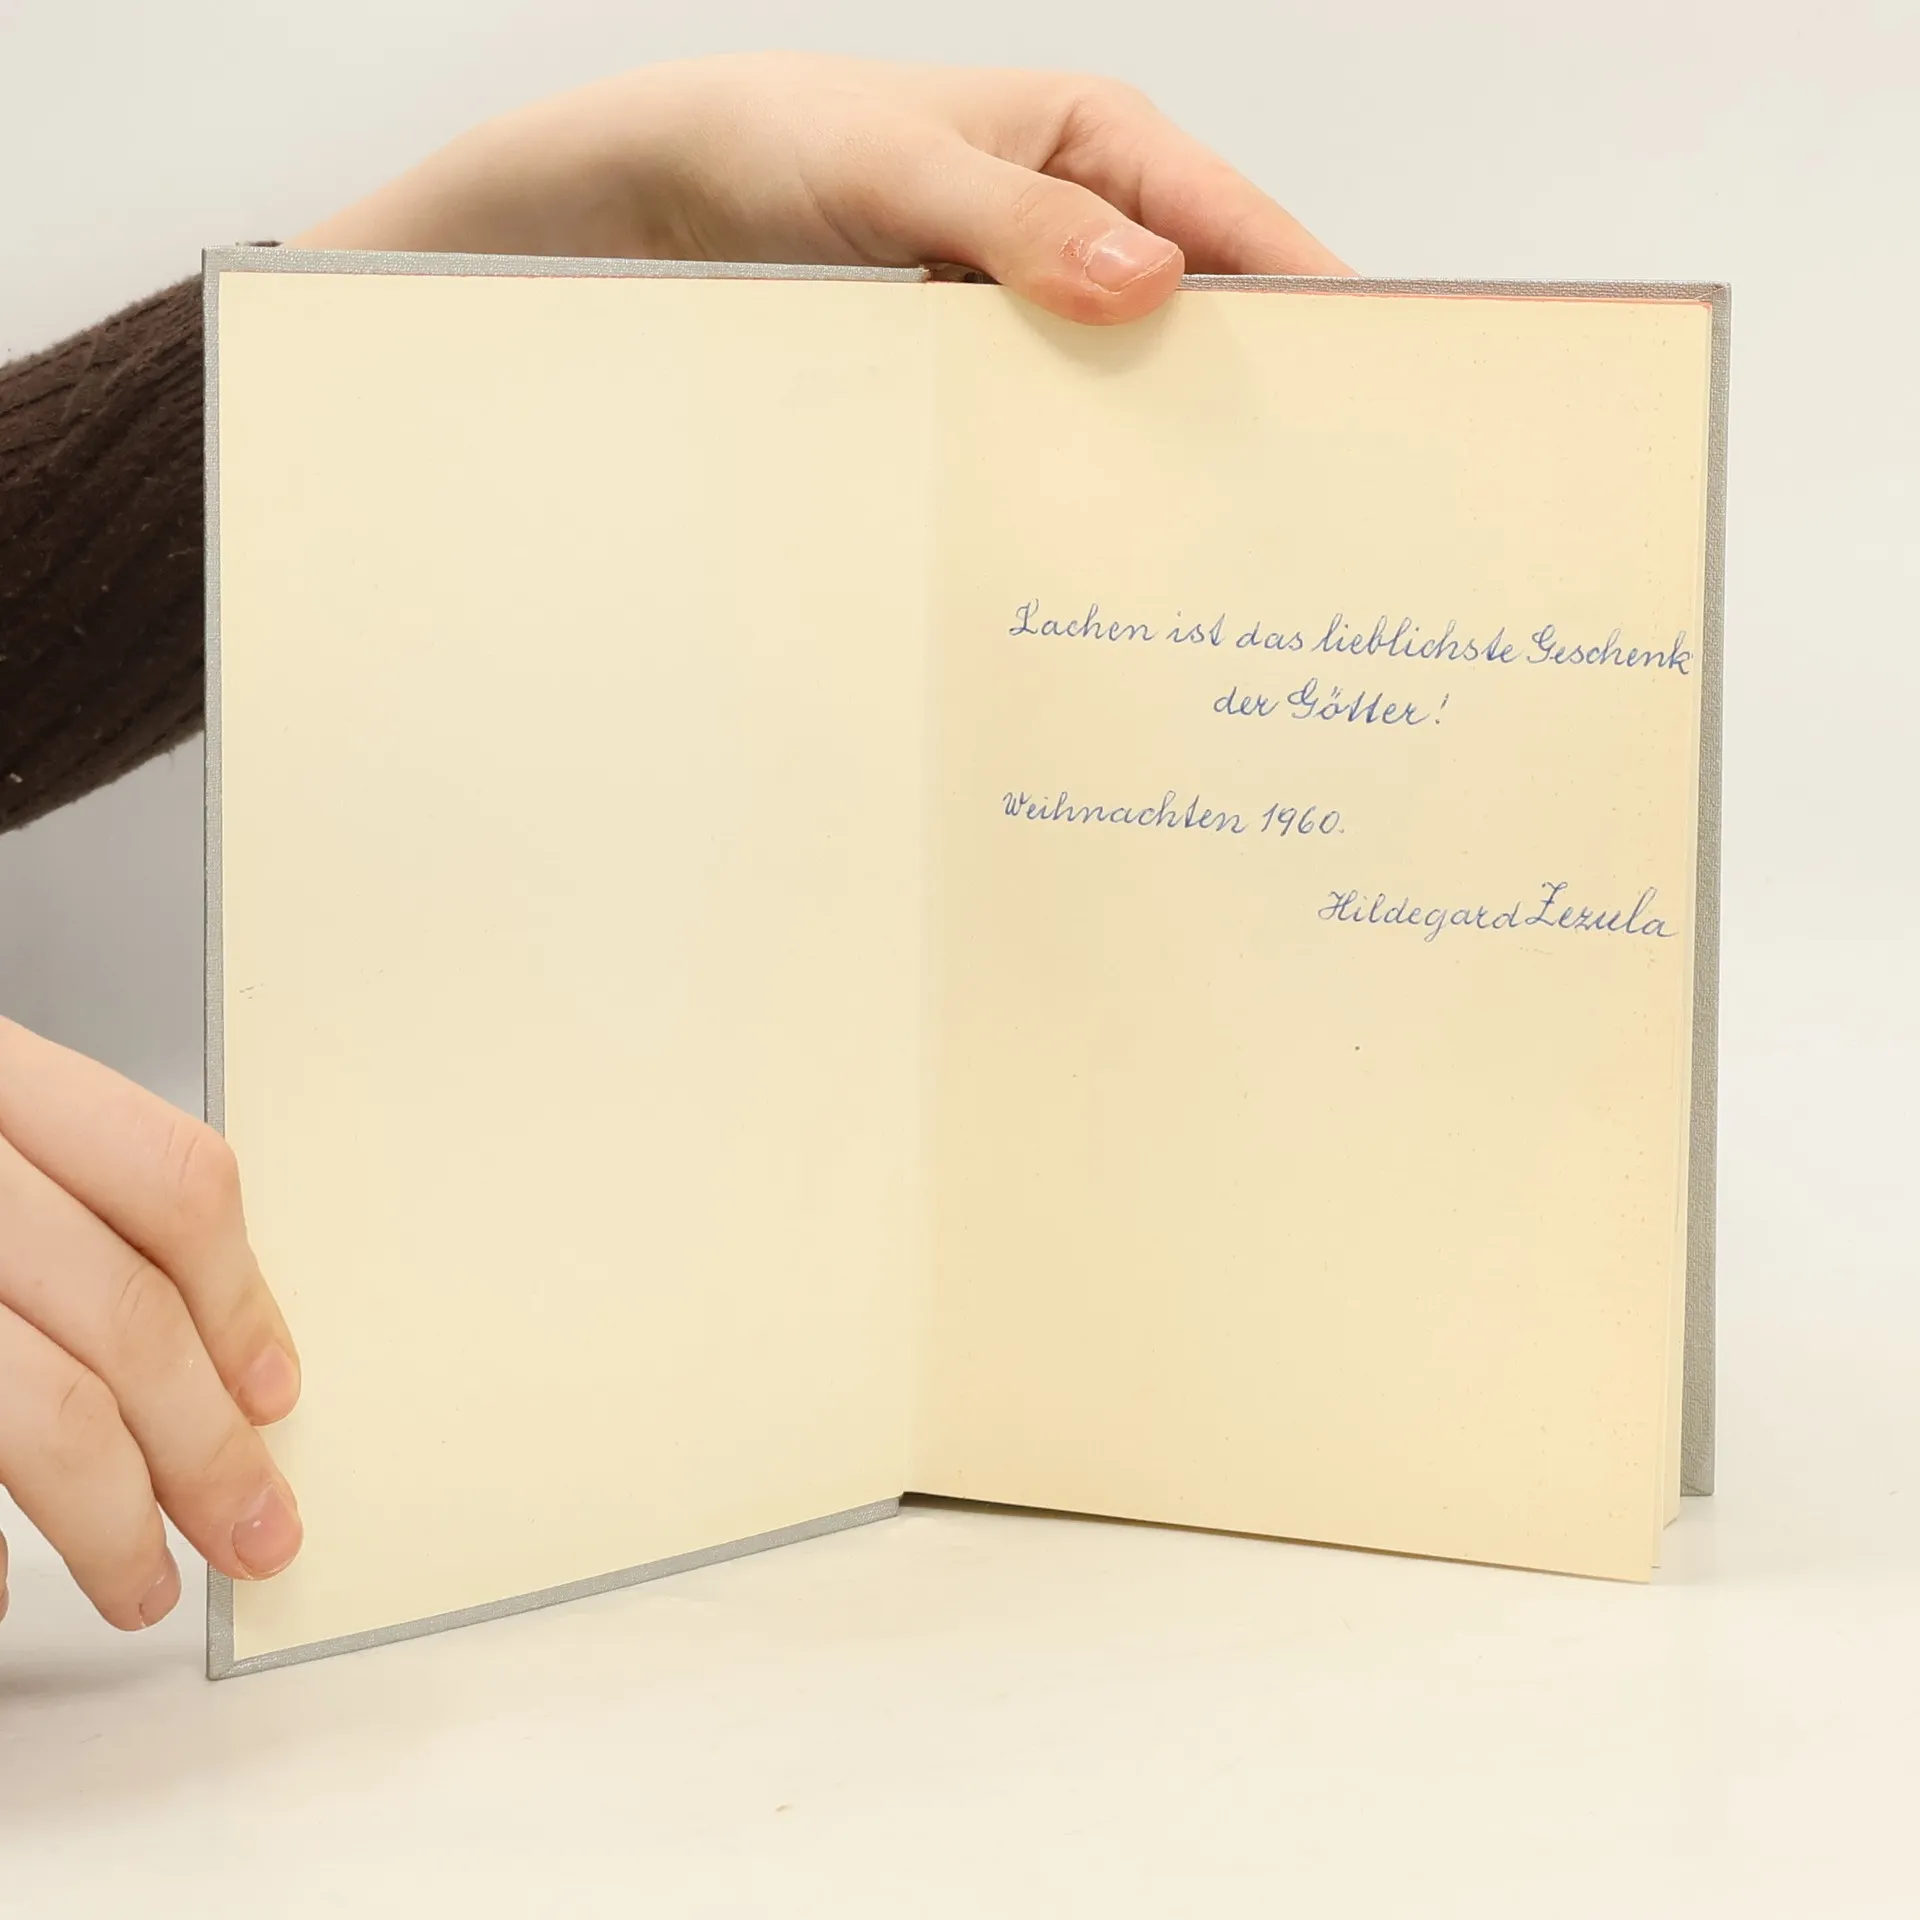 Lachen ist das lieblichste Geschenk
der Götter!
Weihnachten 1960.
Hildegard Zezula